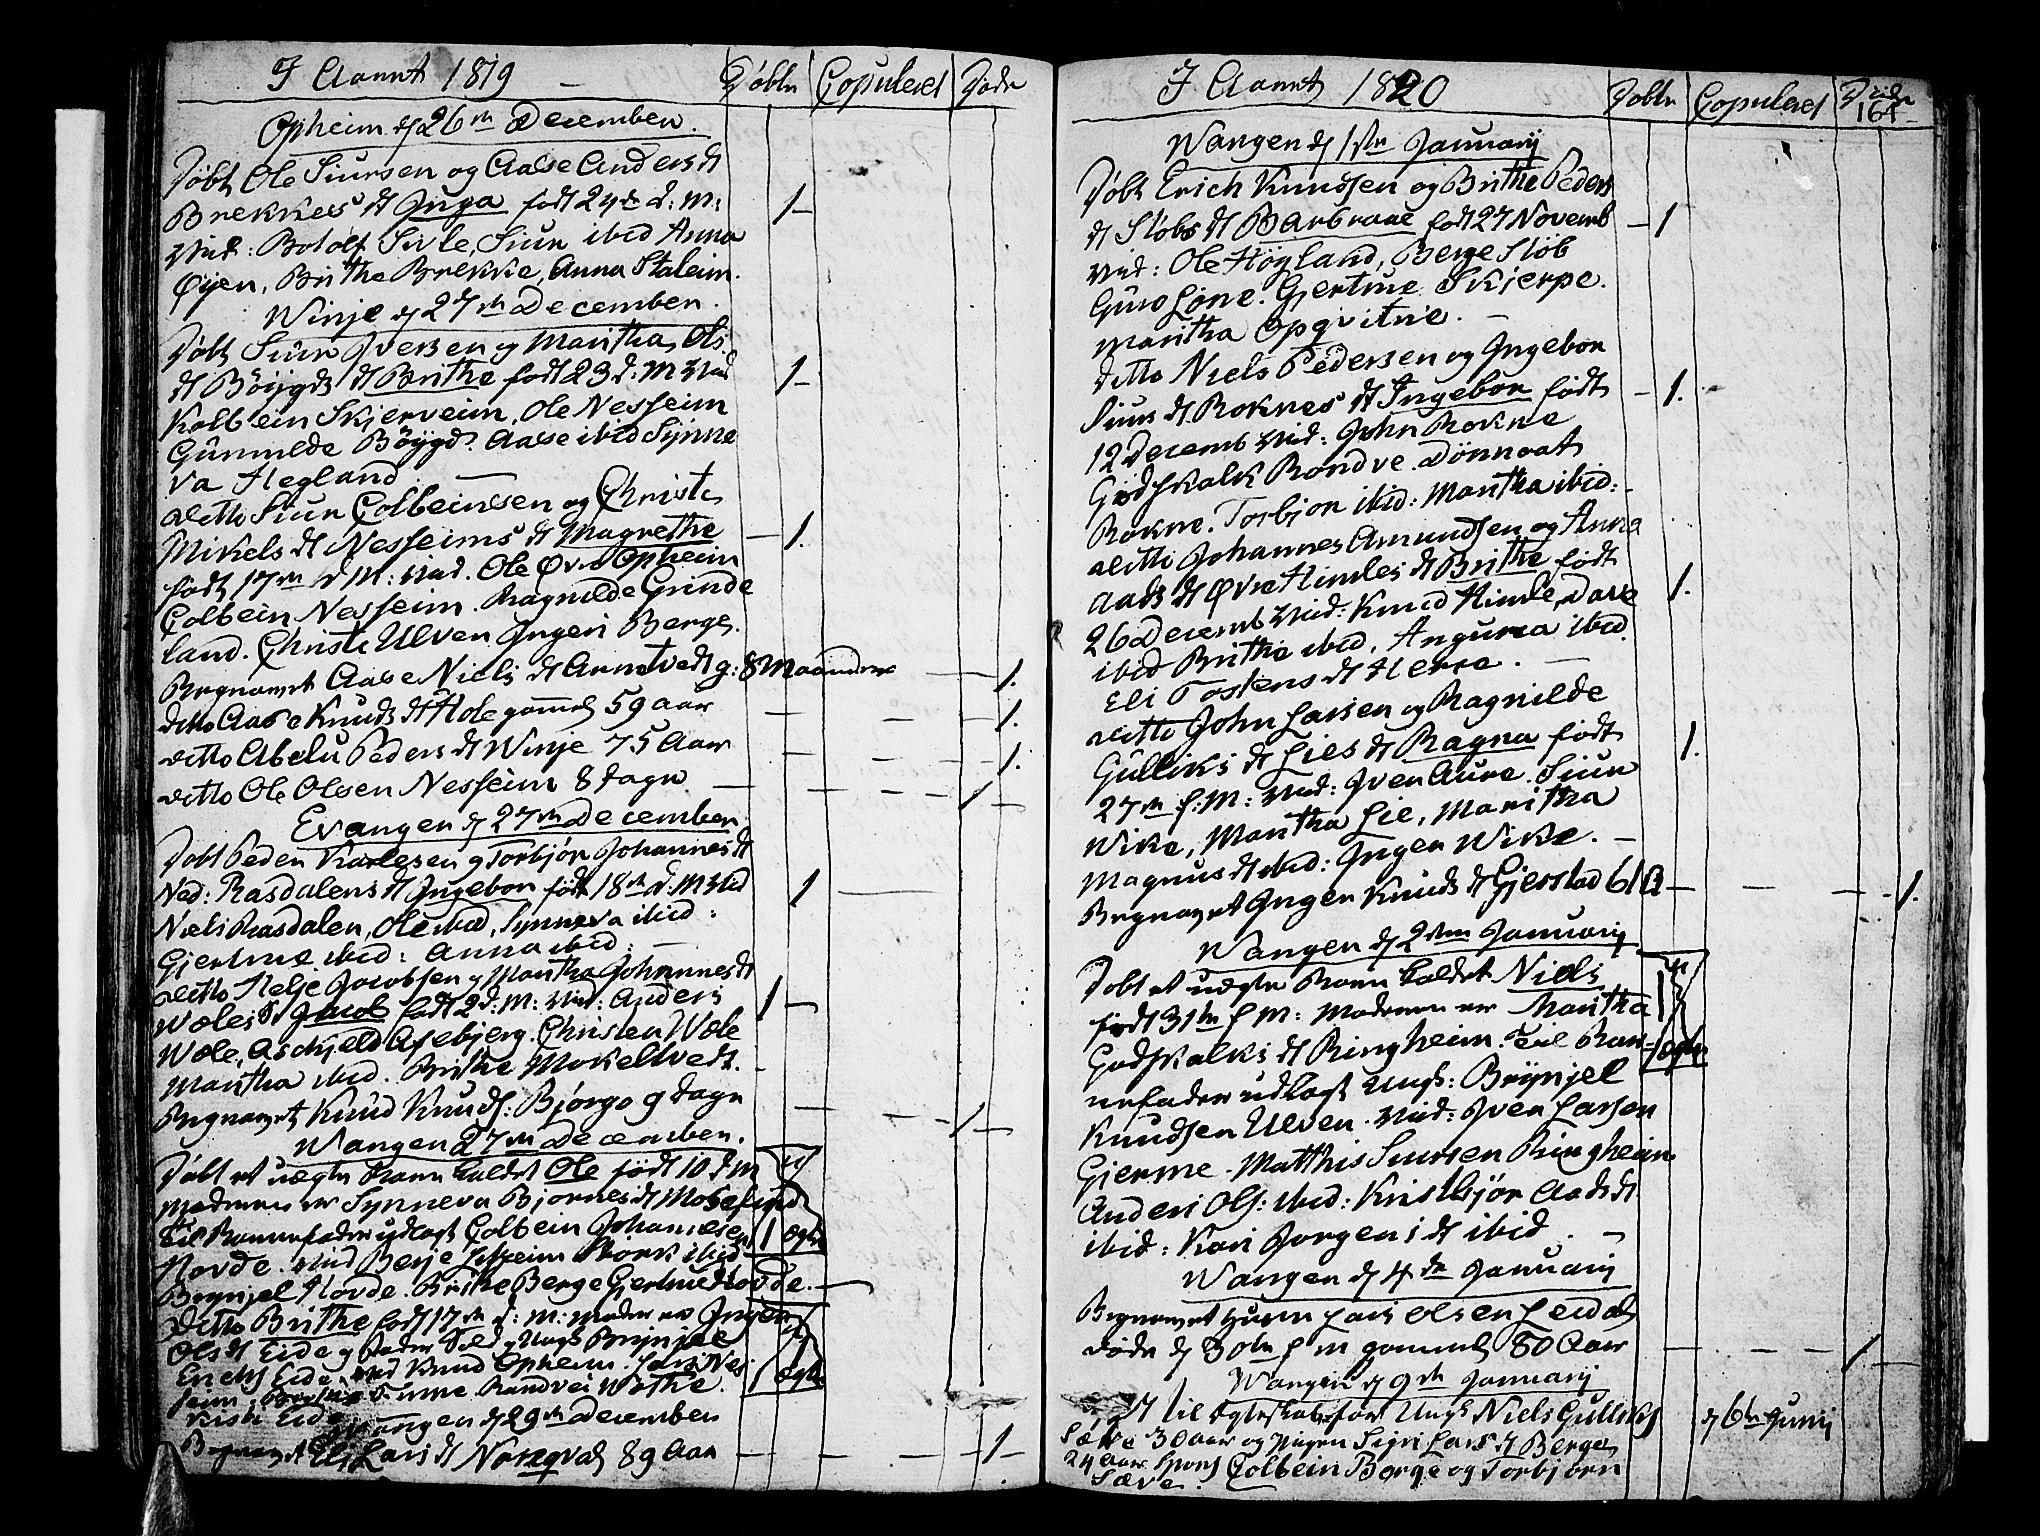 I Aaret 1819 – Døbte Copuleret Døde
Opheim d 26de December.
Døbt Ole Siursen og Aase Anders dt
Brekkes dt Inga født 24de d: M: 1
Vid: Botolf Sivle, Siur ibid Anna
Øÿen, Brithe Brekke, Anna Staleim.
Winje d 27de December.
Døbt Siur Iversen og Maritha Ols
dt Böÿgds dt Brithe født 23 d: M Vid 1
Kolbein Skjerveim, Ole Nesheim
Gunnilde Böÿgd. Aase ibid Synne
va Hegland
ditto Siur Colbeinssen og Christi
Mikels dt Nesheims dt Magrethe 1.
født 17de d M: Vid. Ole Øvre Opheim
Colbein Nesheim. Ragnilde Grinde
land. Christi Ulven Ingeri Berge.
Begravet Aase Niels dt Armotvedt g: 8 Maaneder 1.
ditto Aase Knuds dt Hole gammel 59 aar 1.
ditto Abelu Peders dt Winje 75 Aar 1.
ditto Ole Olsen Nesheim 8 dage 1
Evangen d 27de December
Døbt Peder Karlesen og Torbjör Johannes dt
Ned: Rasdalens dt Ingebor født 18de d: M Vid 1
Niels Rasdalen, Ole ibid, Synneva ibid:
Gjertrue ibid: Anna ibid: –
ditto Helje Jacobsen og Martha Johannes dt
Wæles S: Jacob født 2 d: M: Vid: Anders 1
Wæle, Aschjeld Asebjerg. Christen Wæle
Mantha ibid. Brithe Mokeltvedt.
Begravet Knud Knuds: Bjørgo 9 dage 1
Wangen 27de December.
Døbt et uægte Barn kaldet Ole født 10 d M
Moderen er Synneva Bjørnes dt Mosefind
til Barnefader udlagt Colbein Johannesen 1 ægte
Hovde. Vid Berje Ibid
Brynjel Hovde. Brithe Berge Gjertrue Hovde.
Ditto Brithe født 17de d: M: Moder er Inger
Ols dt Eide og Fader Sold og Ungk Brynjel
Erichs Eide. Vid Knud Opheim. Lars Nes 1 ægte
heim, Finne Randvei Wethe.
Eide
Wangen d 29de December
Begravet Eli Lars dt Norqval 89 Aar 1
I Aaret 1820 Døbte Copuleret Døde
161
Wangen d 1ste Januarij
Døbt Erich Knudsen og Brithe Peders
dt Släbs dt Barbraae født 27 Novemb 1
Vid: Ole Högland, Berge Slöb
Guro Lone. Gjertrue Skjerpe.
Maritha Opqvitne. –
ditto Niels Pedersen og Ingebor
Siurs dt Roknes' dt Ingebor født 1.
12 Decemb Vid: John Rokne
Godskalk Rondve Dönnoat
Rokne. Torbjör ibid: Mantha ibid:
ditto Johannes Amundsen og Anna
Aads dt Øvre Himles dt Brithe født 1.
26 Decemb Vid: Knud Himle, Dave
ibid Brithe ibid, Angunna ibid.
Eli Tostens dt Herre. –
ditto John Larsen og Ragnilde
Gulliks dt Lies dt Ragna født 1.
27de f: M: Vid: Iver Aure. Siur
Wike, Mantha Lie, Maritha
Magnus dt ibid: Inger Wike. –
Begravet Inger Knuds dt Gjerstad 61 A 1.
Wangen d 2den Januarij
Døbt et uægte Barn kaldet Niels
født 31te f M: Moderen er Mantha 1
Godskalks dt Ringheim. Til Bar= ægte
nefader udlagt Ungk: Brÿnjel
Knudsen Ulven. Vid: Iver Larsen
Gjerme. Matthis Siursen Ringheim
Anders Ols: ibid: Kristbjör Aads dt
ibid: Kari Jorgens dt ibid. –
Wangen d 4de Januarij
Begravet Huusm Lars Olsen Leidal
døde d 30te f M gammel 80 Aar 1
Wangen d 9de Januarij
til Ægteskab for Ungk Niels Gulliks d 6te Junij
Sæve 30 aar og Pigen Sigri Lars dt Berge
24 aar Colbein Berge og Torbjørn
Sæve.